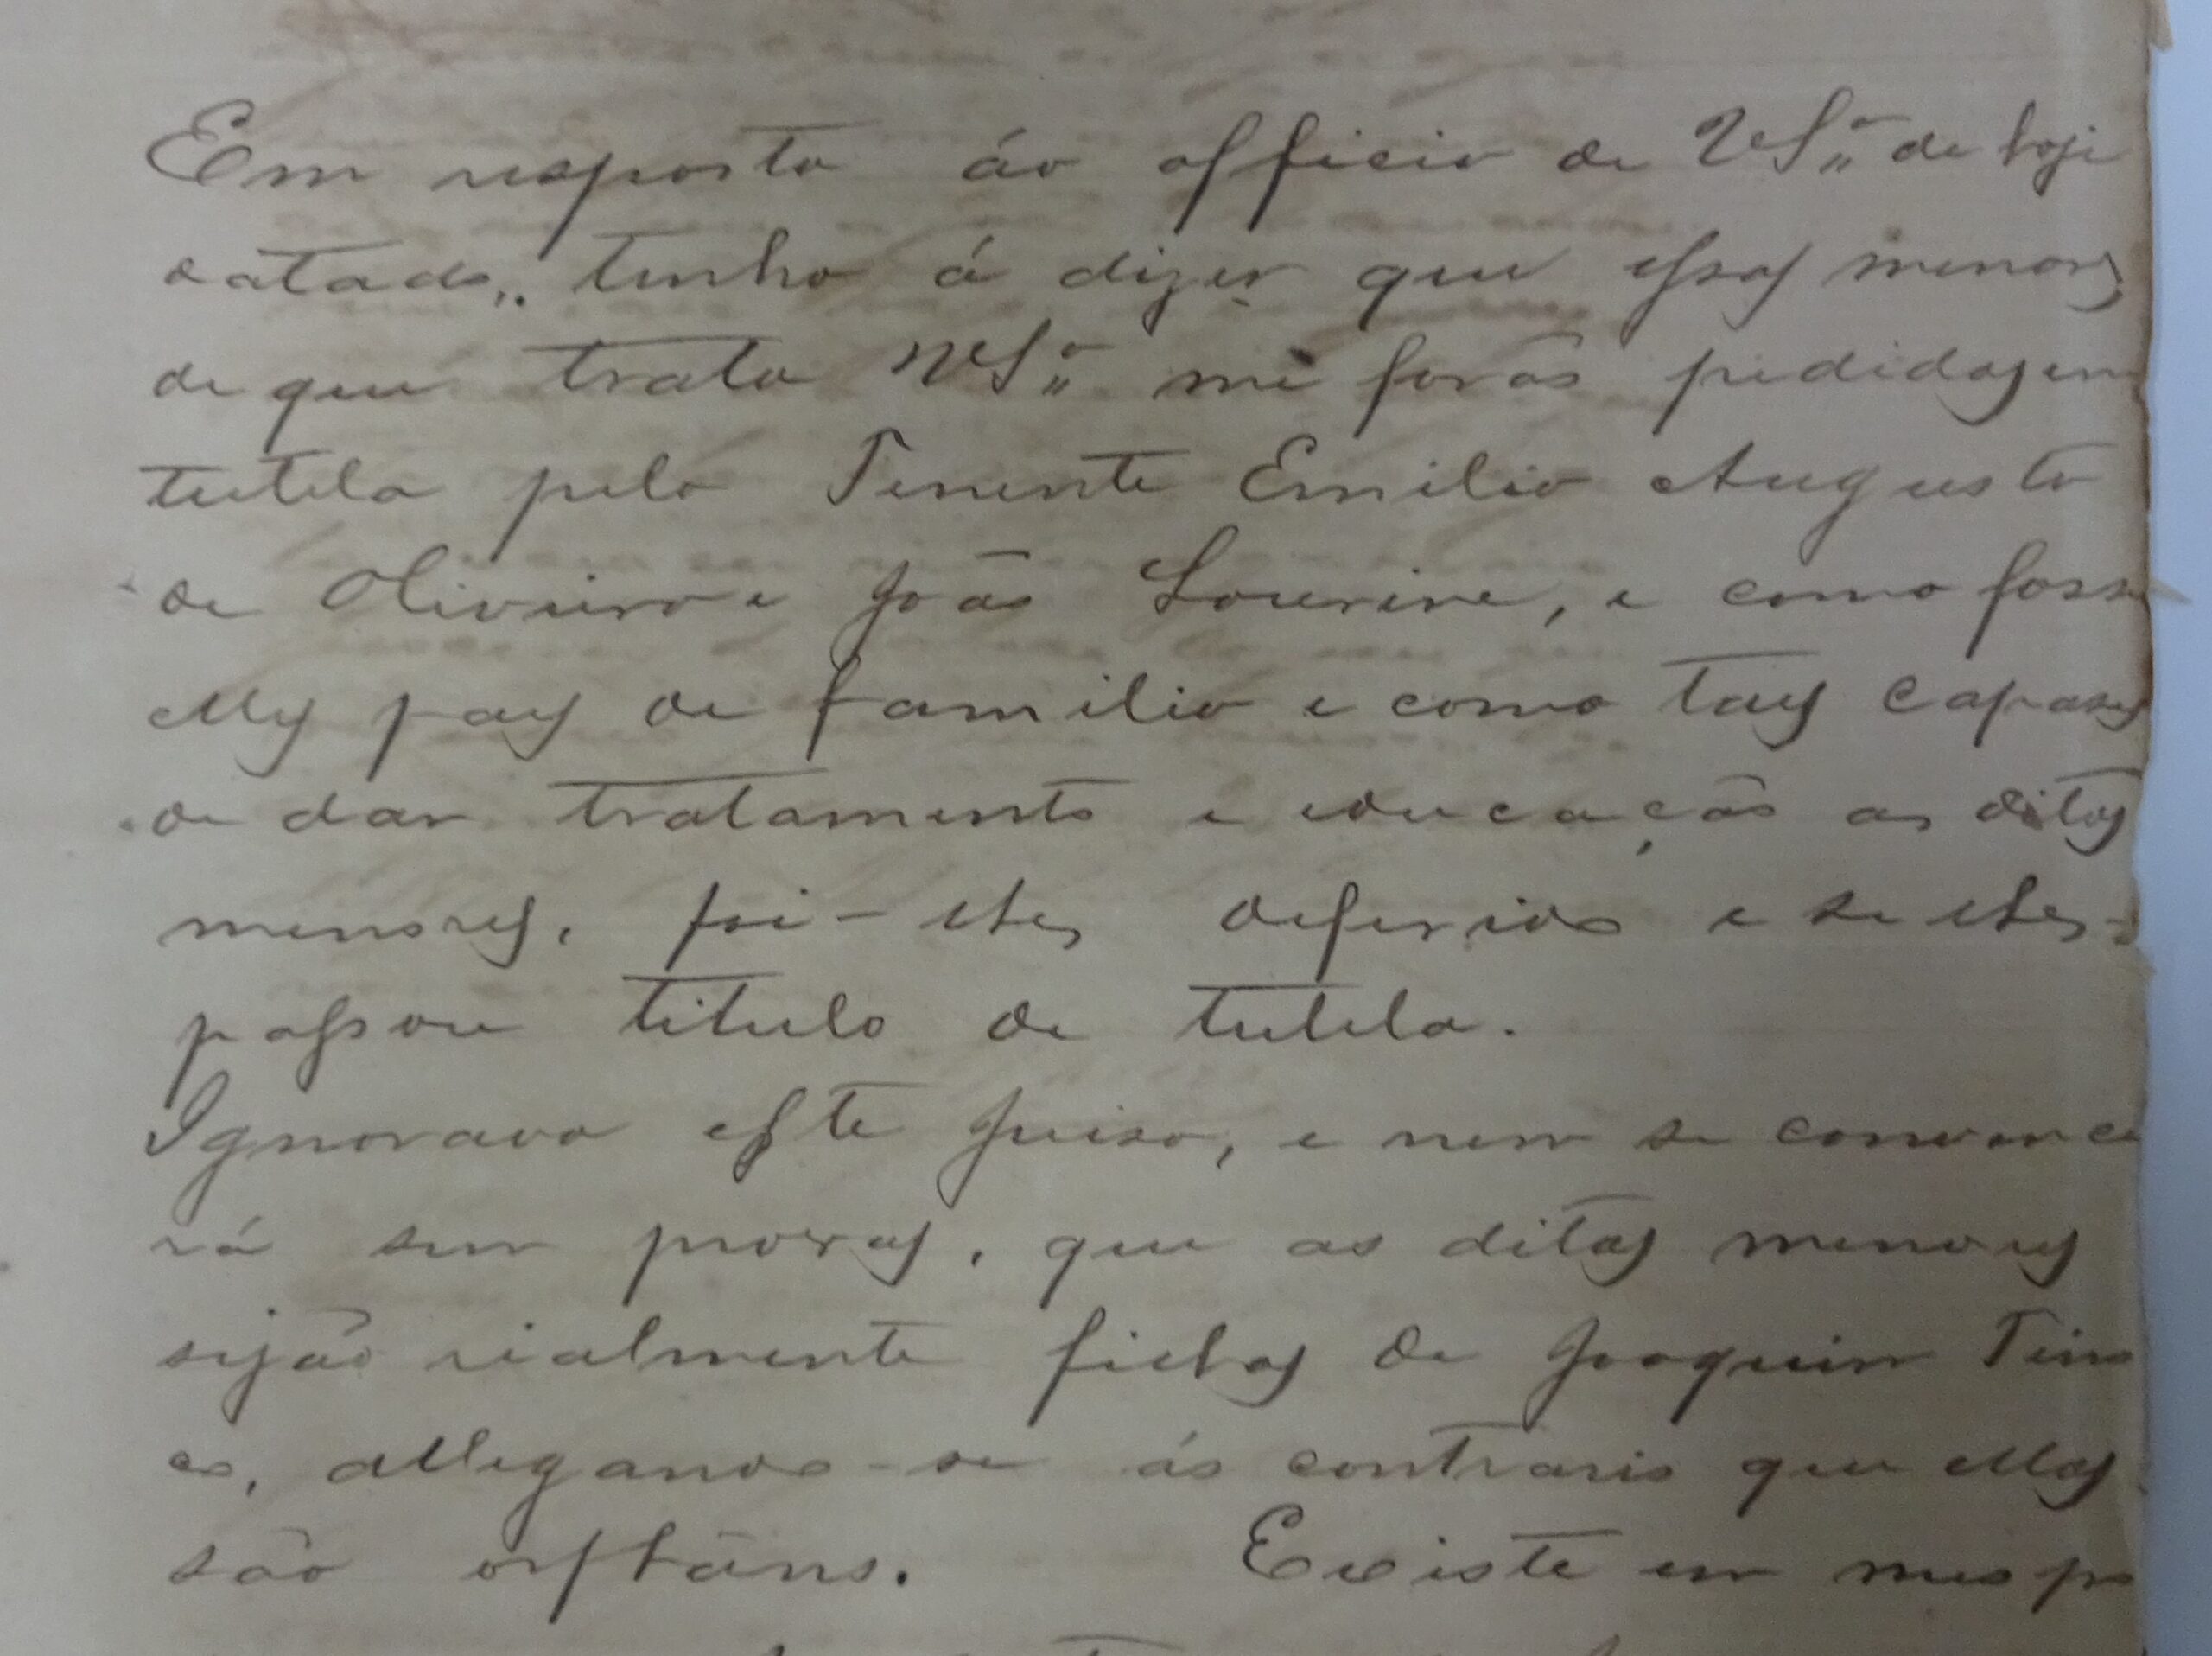 Em resposta áo officio de VS.ª de hoje
datado, tenho á dizer que essas menores
de que trata VS.ª me forão pedidas em
tutela pelo Tenente Emilio Augusto
de Oliveira e João Lourive, e como fosse
elles pays de familia e como tays capases
de dar tratamento e educação as ditas
menores, foi-lhes deferido e se lhes
passou titulo de tutela.
Ignorava este Juiso, e nem se convence
rá sem provas, que as ditas menores
sejão rialmente filhas de Joaquim
allegando-se áo contrario que ellas
são orfhãns. Existe em meo po